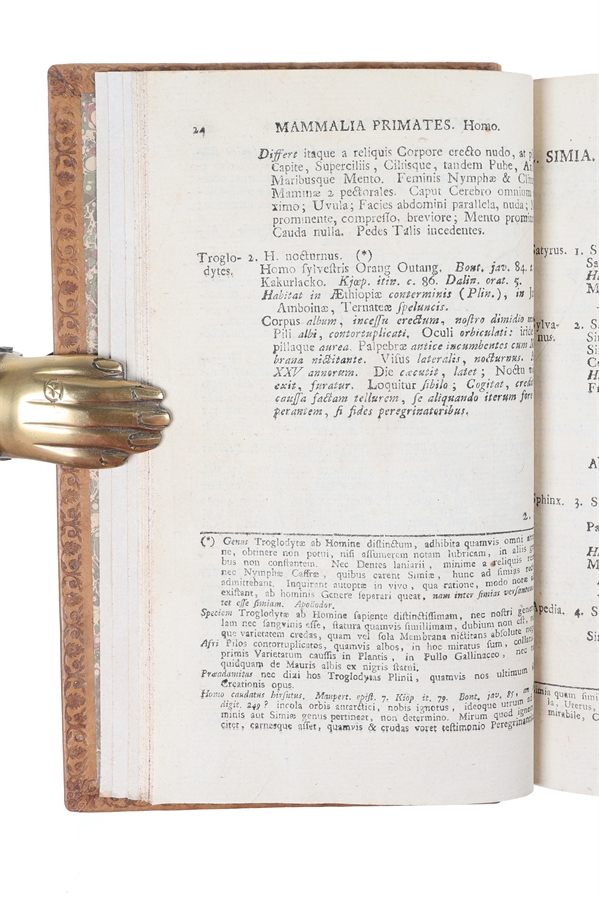 24 MAMMALIA PRIMATES. Homo.
Differt itaque a reliquis Corpore erecto nudo, at
Capite, Superciliis, Ciliisque, tandem Pube,
Maribusque Mento. Feminis Nymphæ &
Mammæ 2 pectorales. Caput Cerebro omnium
ximo; Uvula; Facies abdomini parallela, nuda;
prominente, compresso, breviore; Mento
Cauda nulla. Pedes Talis incedentes.
Troglo- 2. H. nocturnus. (*)
dytes. Homo sylvestris Orang Outang. Bont. jav. 84.
Kakurlacko. Kjœp. itin. c. 86. Dalin. orat. 5.
Habitat in Æthiopiæ conterminis (Plin.), in
Amboinæ, Ternateæ speluncis.
Corpus album, incessu erectum, nostro dimidio
Pili albi, contortuplicati. Oculi orbiculati:
pillaque aurea. Palpebræ antice incumbentes cum
brana nictitante. Visus lateralis, nocturnus.
XXV annorum. Die cæcutit, latet; Noctu
exit, furatur. Loquitur sibilo; Cogitat,
caussa factam tellurem, se aliquando iterum
perantem, si fides peregrinatoribus.
2.
(*) Genus Troglodytæ ab Homine distinctum, adhibita quamvis omni
ne, obtinere non potui, nisi assumerem notam lubricam, in aliis
bus non constantem. Nec Dentes laniarii, minime a reliquis
nec Nymphæ Caffræ, quibus carent Simiæ, hunc ad simias
admittebant. Inquirant autoptæ in vivo, qua ratione, modo notæ
existant, ab hominis Genere separari queat, nam inter simias versantem
tet esse simiam. Apollodor.
Speciem Troglodytæ ab Homine sapiente distinctissimam, nec nostri
lam nec sangvinis esse, statura quamvis simillimam, dubium non est,
que varietatem credas, quam vel sola Membrana nictitans absolute
Afri Pilos contortuplicatos, quamvis albos, in hoc miratus sum,
primis Varietatum caussis in Plantis, in Pullo Gallinaceo, nec
quidquam de Mauris albis ex nigris statui.
Præadamitus nec dixi hos Troglodytas Plinii, quamvis nos ultimum
Creationis opus.
Homo caudatus hirsutus. Maupert. epist. 7. Kiöp it. 79. Bont. jav. 85, an
digit. 249? incola orbis antarctici, nobis ignotus, ideoque utrum
minis aut Simiæ genus pertineat, non determino. Mirum quod
citet, carnesque asset, quamvis & crudas voret testimonio
SIMIA.
Satyrus. 1. S
Sylva- 2. S
nus.
Sphinx. 3. S
Apedia. 4. S
Simia quam
la, Uterus,
mirabile, C